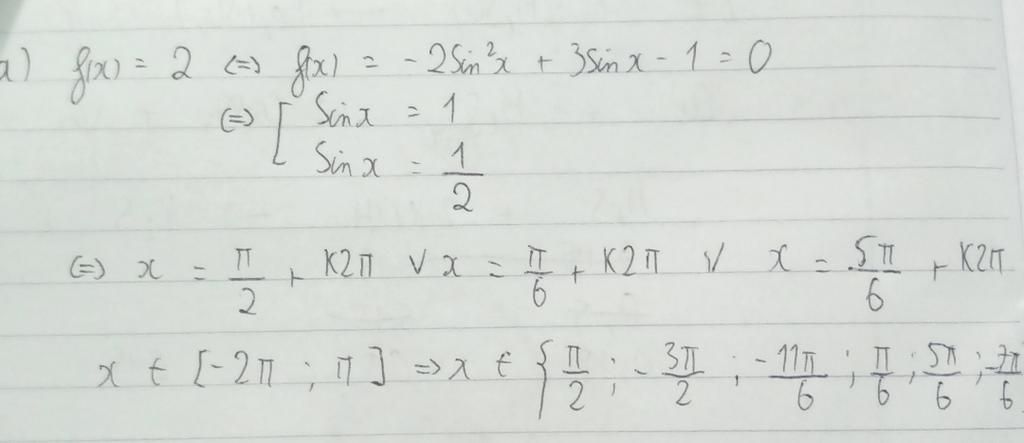 a) f(x) = 2 <=> f(x) = -2Sin²x + 3Sin x - 1 = 0
<=> [ Sin x = 1
Sin x = 1/2
<=> x = π/2 + K2π ∨ x = π/6 + K2π ∨ x = 5π/6 + K2π
x ∈ [-2π ; π] => x ∈ { π/2 ; -3π/2 ; -11π/6 ; π/6 ; 5π/6 ; -7π/6